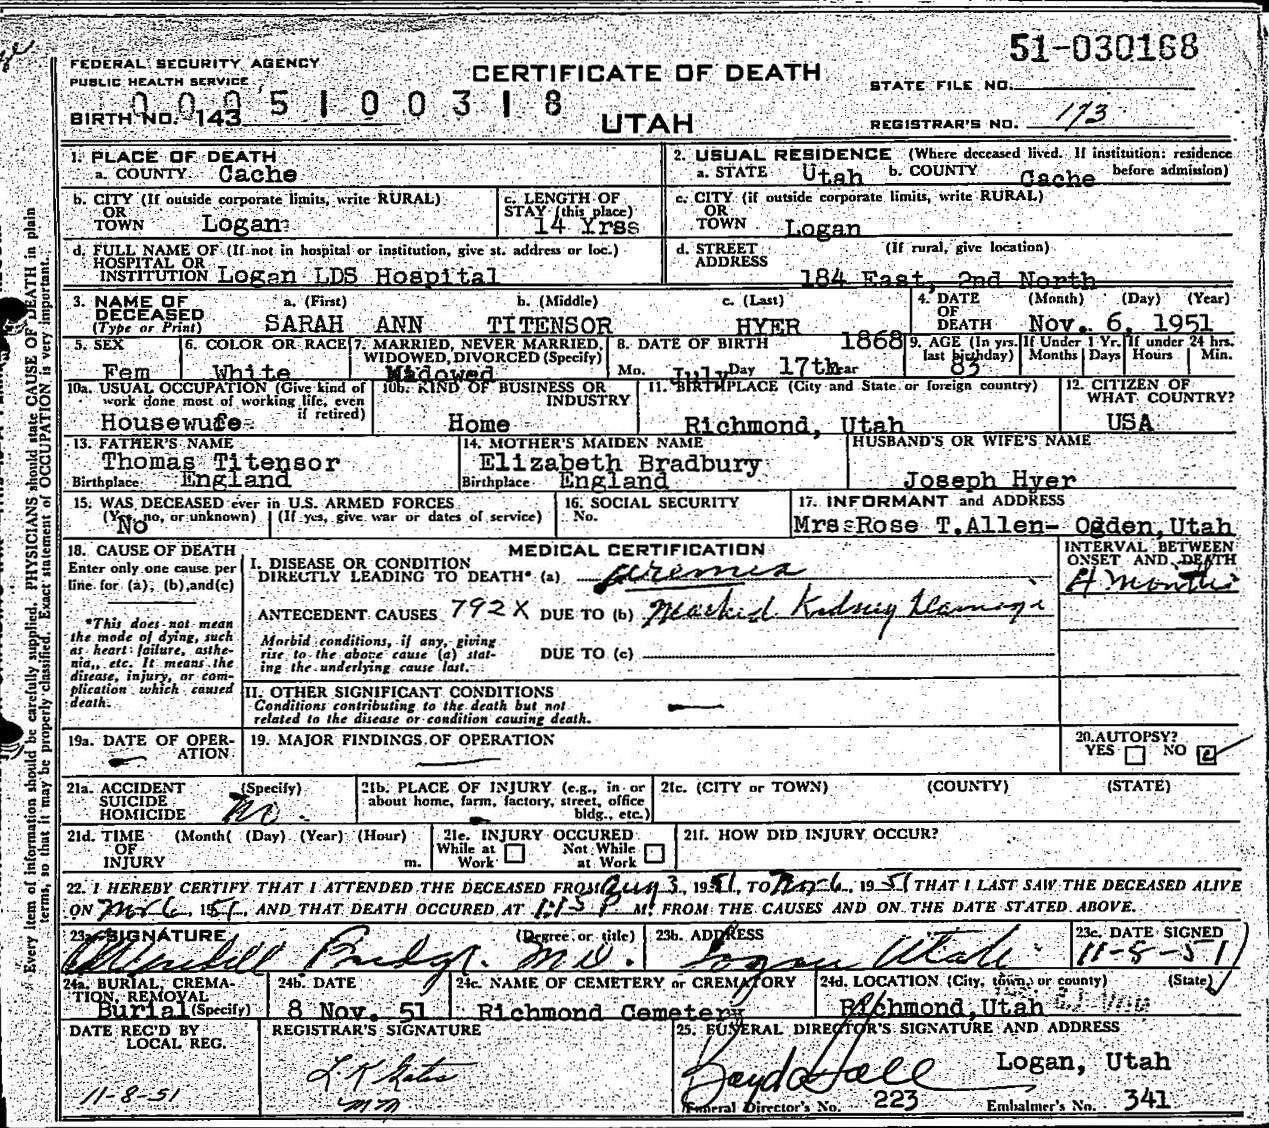 51-030168
FEDERAL SECURITY AGENCY
PUBLIC HEALTH SERVICE
CERTIFICATE OF DEATH
STATE FILE NO.
0005100318
BIRTH NO. 143
UTAH
REGISTRAR'S NO. 173
1. PLACE OF DEATH
a. COUNTY Cache
2. USUAL RESIDENCE (Where deceased lived. If institution: residence before admission)
a. STATE Utah b. COUNTY Cache
b. CITY (If outside corporate limits, write RURAL)
OR
TOWN Logan
c. LENGTH OF
STAY (this place)
14 Yrss
c. CITY (if outside corporate limits, write RURAL)
OR
TOWN Logan
d. FULL NAME OF (If not in hospital or institution, give st. address or loc.)
HOSPITAL OR
INSTITUTION Logan LDS Hospital
d. STREET (If rural, give location)
ADDRESS
184 East, 2nd North
3. NAME OF DECEASED (Type or Print)
a. (First) b. (Middle) c. (Last)
SARAH ANN TITENSOR HYER
4. DATE OF DEATH (Month) (Day) (Year)
Nov. 6, 1951
5. SEX
Fem
6. COLOR OR RACE
White
7. MARRIED, NEVER MARRIED,
WIDOWED, DIVORCED (Specify)
Widowed
8. DATE OF BIRTH 1868
Mo. July Day 17th Year
9. AGE (In yrs. last birthday) 83
If Under 1 Yr. Months Days
If under 24 hrs. Hours Min.
10a. USUAL OCCUPATION (Give kind of
work done most of working life, even
if retired)
Housewufe
10b. KIND OF BUSINESS OR
INDUSTRY
Home
11. BIRTHPLACE (City and State or foreign country)
Richmond, Utah
12. CITIZEN OF
WHAT COUNTRY?
USA
13. FATHER'S NAME
Thomas Titensor
Birthplace England
14. MOTHER'S MAIDEN NAME
Elizabeth Bradbury
Birthplace England
HUSBAND'S OR WIFE'S NAME
Joseph Hyer
15. WAS DECEASED ever in U.S. ARMED FORCES
(Yes, no, or unknown) (If yes, give war or dates of service)
No
16. SOCIAL SECURITY
No.
17. INFORMANT and ADDRESS
Mrs Rose T.Allen- Ogden,Utah
18. CAUSE OF DEATH
Enter only one cause per
line for (a), (b), and(c)
*This does not mean
the mode of dying, such
as heart failure, asthe-
nia,, etc. It means the
disease, injury, or com-
plication which caused
death.
MEDICAL CERTIFICATION
I. DISEASE OR CONDITION
DIRECTLY LEADING TO DEATH* (a) uremia
ANTECEDENT CAUSES 792X DUE TO (b) Marked Kidney Damage
Morbid conditions, if any, giving
rise to the above cause (a) stat-
ing the underlying cause last.
DUE TO (c)
INTERVAL BETWEEN
ONSET AND DEATH
4 months
II. OTHER SIGNIFICANT CONDITIONS
Conditions contributing to the death but not
related to the disease or condition causing death.
19a. DATE OF OPER-
ATION
19. MAJOR FINDINGS OF OPERATION
20. AUTOPSY?
YES NO
21a. ACCIDENT (Specify)
SUICIDE
HOMICIDE No.
21b. PLACE OF INJURY (e.g., in or
about home, farm, factory, street, office
bldg., etc.)
21c. (CITY or TOWN) (COUNTY) (STATE)
21d. TIME (Month( (Day) (Year) (Hour)
OF
INJURY m.
21e. INJURY OCCURED
While at Work Not While at Work
21f. HOW DID INJURY OCCUR?
22. I HEREBY CERTIFY THAT I ATTENDED THE DECEASED FROM Aug 3, 1951, TO Nov 6, 1951 THAT I LAST SAW THE DECEASED ALIVE
ON Nov 6, 1951, AND THAT DEATH OCCURED AT 1:15 P M. FROM THE CAUSES AND ON THE DATE STATED ABOVE.
23a. SIGNATURE (Degree or title)
Budge. M.D.
23b. ADDRESS
Logan Utah
23c. DATE SIGNED
11-8-51
24a. BURIAL, CREMA-
TION, REMOVAL
Burial (Specify)
24b. DATE
8 Nov. 51
24c. NAME OF CEMETERY or CREMATORY
Richmond Cemetery
24d. LOCATION (City, town, or county) (State)
Richmond,Utah
DATE REC'D BY
LOCAL REG.
11-8-51
REGISTRAR'S SIGNATURE
25. FUNERAL DIRECTOR'S SIGNATURE AND ADDRESS
Logan, Utah
Funeral Director's No. 223 Embalmer's No. 341
Every item of information should be carefully supplied. PHYSICIANS should state CAUSE OF DEATH in plain
terms, so that it may be properly classified. Exact statement of OCCUPATION is very important.